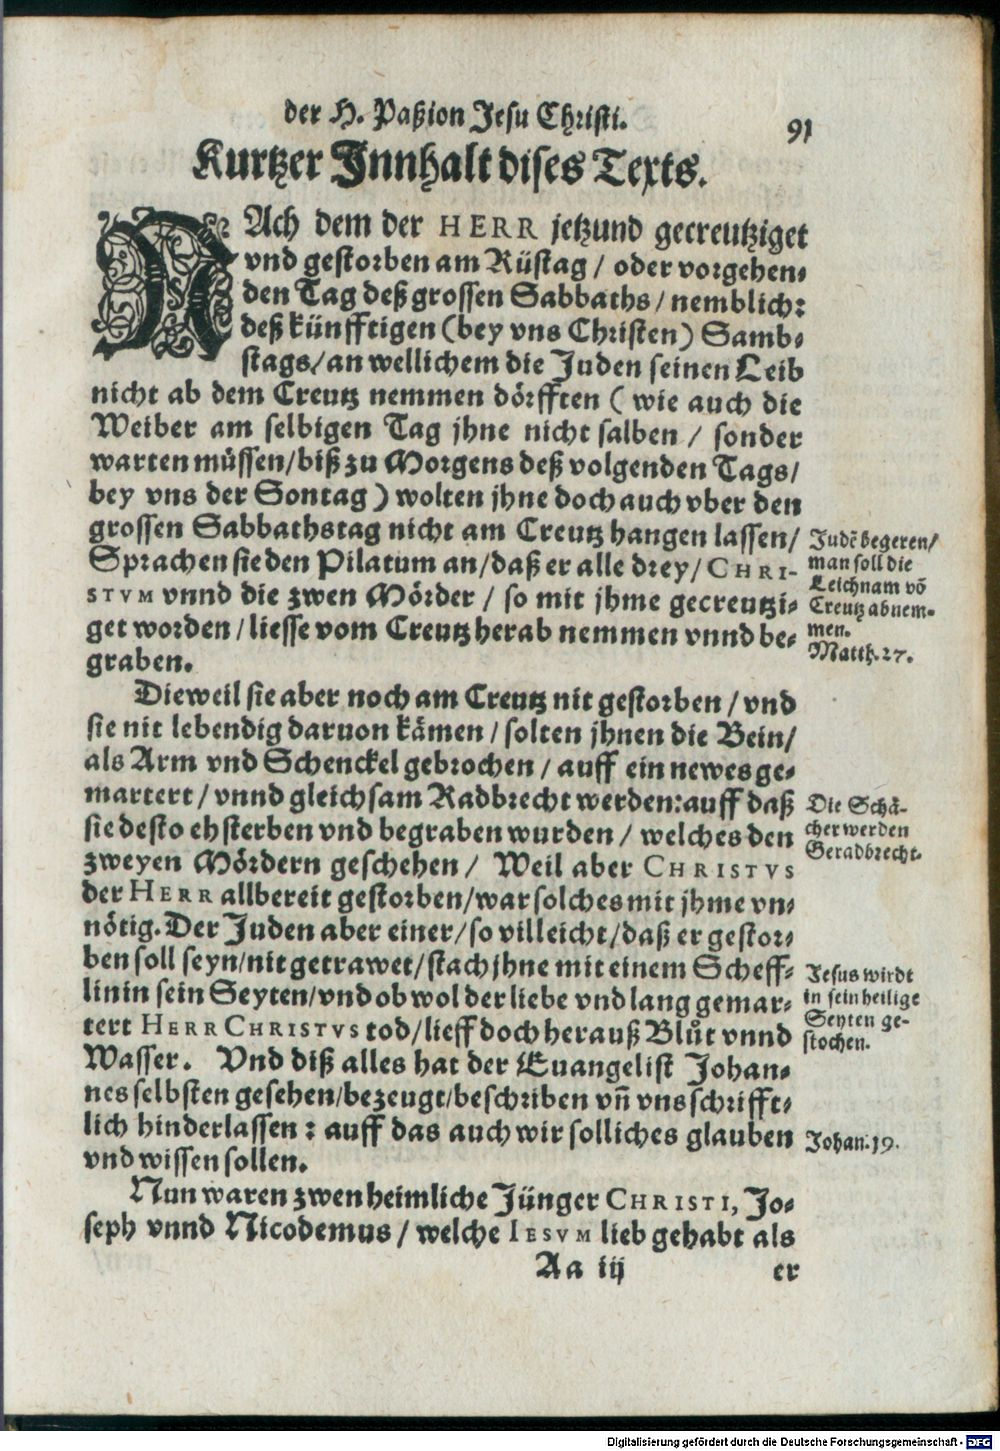 der H. Paßion Jesu Christi.
91
Kurtzer Innhalt dises Texts.
NAch dem der HERR jetzund gecreutziget
vnd gestorben am Rüstag / oder vorgehen-
den Tag deß grossen Sabbaths / nemblich:
deß künfftigen (bey vns Christen) Samb-
stags / an wellichem die Juden seinen Leib
nicht ab dem Creutz nemmen dörfften ( wie auch die
Weiber am selbigen Tag jhne nicht salben / sonder
warten müssen / biß zu Morgens deß volgenden Tags /
bey vns der Sontag ) wolten jhne doch auch vber den
grossen Sabbathstag nicht am Creutz hangen lassen /
Sprachen sie den Pilatum an / daß er alle drey / CHRI-
STVM vnnd die zwen Mörder / so mit jhme gecreutzi-
get worden / liesse vom Creutz herab nemmen vnnd be-
graben.
Judẽ begeren /
man soll die
Leichnam võ
Creutz abnem-
men.
Matth. 27.
Dieweil sie aber noch am Creutz nit gestorben / vnd
sie nit lebendig daruon kämen / solten jhnen die Bein /
als Arm vnd Schenckel gebrochen / auff ein newes ge-
martert / vnnd gleichsam Radbrecht werden: auff daß
sie desto eh sterben vnd begraben wurden / welches den
zweyen Mördern geschehen / Weil aber CHRISTVS
der HERR allbereit gestorben / war solches mit jhme vn-
nötig. Der Juden aber einer / so villeicht / daß er gestor-
ben soll seyn / nit getrawet / stach jhne mit einem Scheff-
lin in sein Seyten / vnd ob wol der liebe vnd lang gemar-
tert HERR CHRISTVS tod / lieff doch herauß Blůt vnnd
Wasser. Vnd diß alles hat der Euangelist Johan-
nes selbsten gesehen / bezeugt / beschriben vñ vns schrifft-
lich hinderlassen : auff das auch wir solliches glauben
vnd wissen sollen.
Die Schä-
cher werden
Geradbrecht.
Jesus wirdt
in sein heilige
Seyten ge-
stochen.
Johan. 19.
Nun waren zwen heimliche Jünger CHRISTI, Jo-
seph vnnd Nicodemus / welche IESVM lieb gehabt als
Aa iij
er
Digitalisierung gefördert durch die Deutsche Forschungsgemeinschaft - DFG